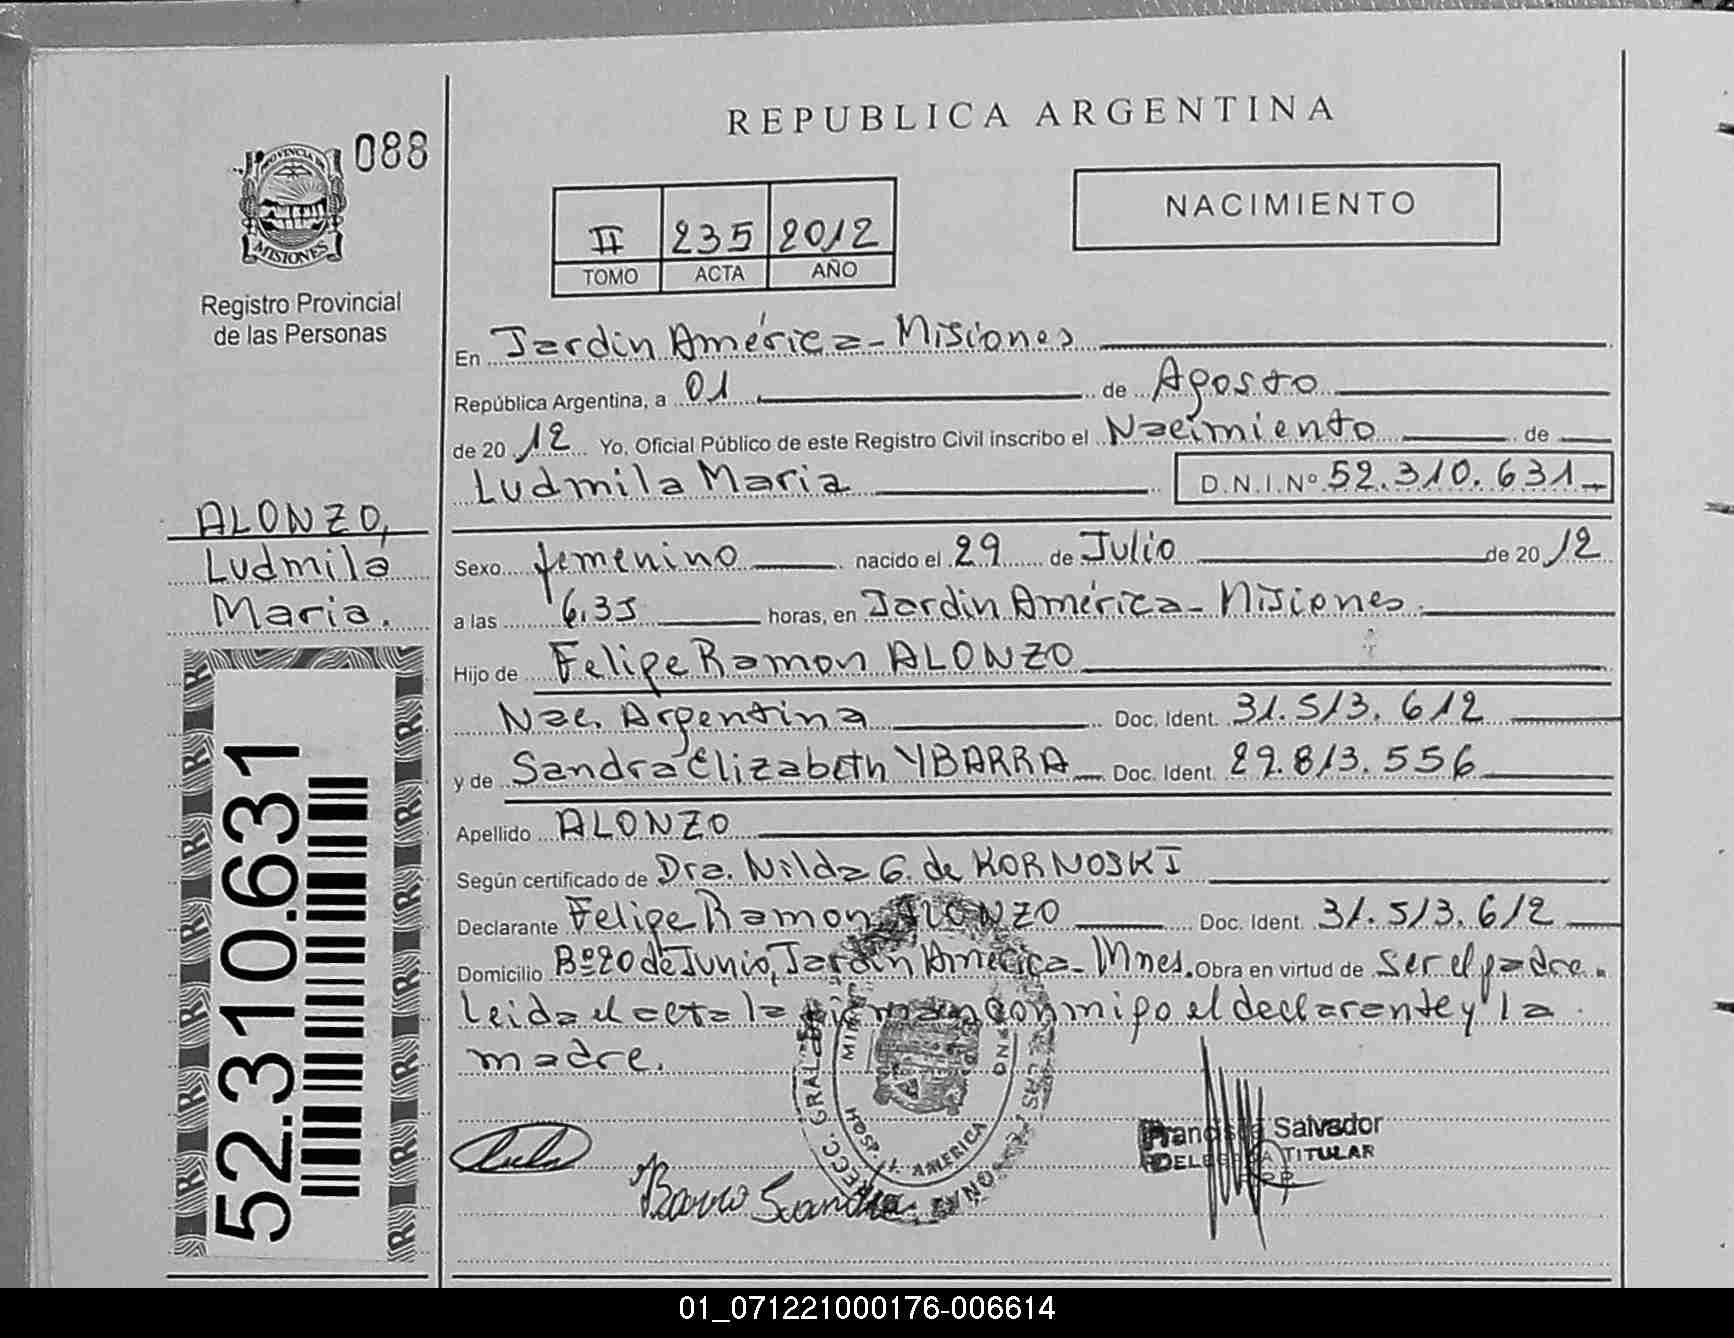 REPUBLICA ARGENTINA
088
NACIMIENTO
PROVINCIA DE
MISIONES
II 235 2012
TOMO ACTA AÑO
Registro Provincial
de las Personas
En Jardin América - Misiones
República Argentina, a 01 de Agosto
de 2012 Yo, Oficial Público de este Registro Civil inscribo el Nacimiento de
Ludmila Maria D.N.I.Nº 52.310.631
ALONZO,
Ludmila
Maria.
Sexo femenino nacido el 29 de Julio de 2012
a las 6.35 horas, en Jardin América - Misiones.
Hijo de Felipe Ramon ALONZO
Nac. Argentina Doc. Ident. 31.513.612
y de Sandra Elizabeth YBARRA Doc. Ident. 29.813.556
Apellido ALONZO
Según certificado de Dra. Nilda G. de KORNOSKI
Declarante Felipe Ramon ALONZO Doc. Ident. 31.513.612
Domicilio Bº 20 de Junio, Jardin América - Mnes. Obra en virtud de ser el padre.
Leida el acta la firman conmigo el declarante y la
madre.
52.310.631
AMERICA
Salvador
TITULAR
01_071221000176-006614